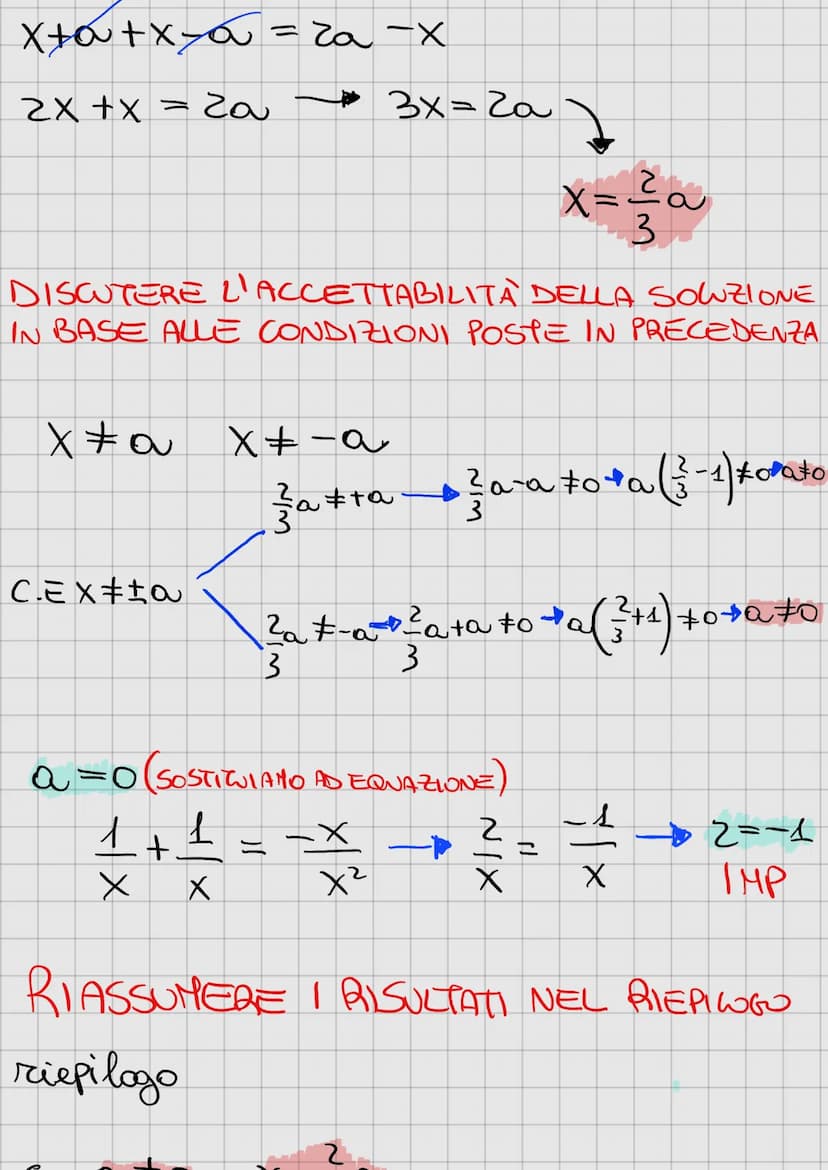 x+a+x-a = 2a -x
2x +x = 2a → 3x = 2a
x = 2/3 a
DISCUTERE L'ACCETTABILITÀ DELLA SOLUZIONE
IN BASE ALLE CONDIZIONI POSTE IN PRECEDENZA
x ≠ a x ≠ -a
2/3 a ≠ +a → 2/3 a-a ≠0 → a(2/3 -1) ≠0 → a≠0
C.E x≠±a
2/3 a ≠ -a → 2/3 a+a ≠0 → a(2/3 +1) ≠0 → a≠0
a=0 (SOSTITUIAMO AD EQUAZIONE)
1/x + 1/x = -x/x² → 2/x = -1/x → 2=-1
IMP
RIASSUMERE I RISULTATI NEL RIEPILOGO
riepilogo
2